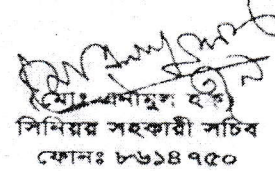 মোঃ এনামুল হক
সিনিয়র সহকারী সচিব
ফোনঃ ৮৬১৪৭৫০